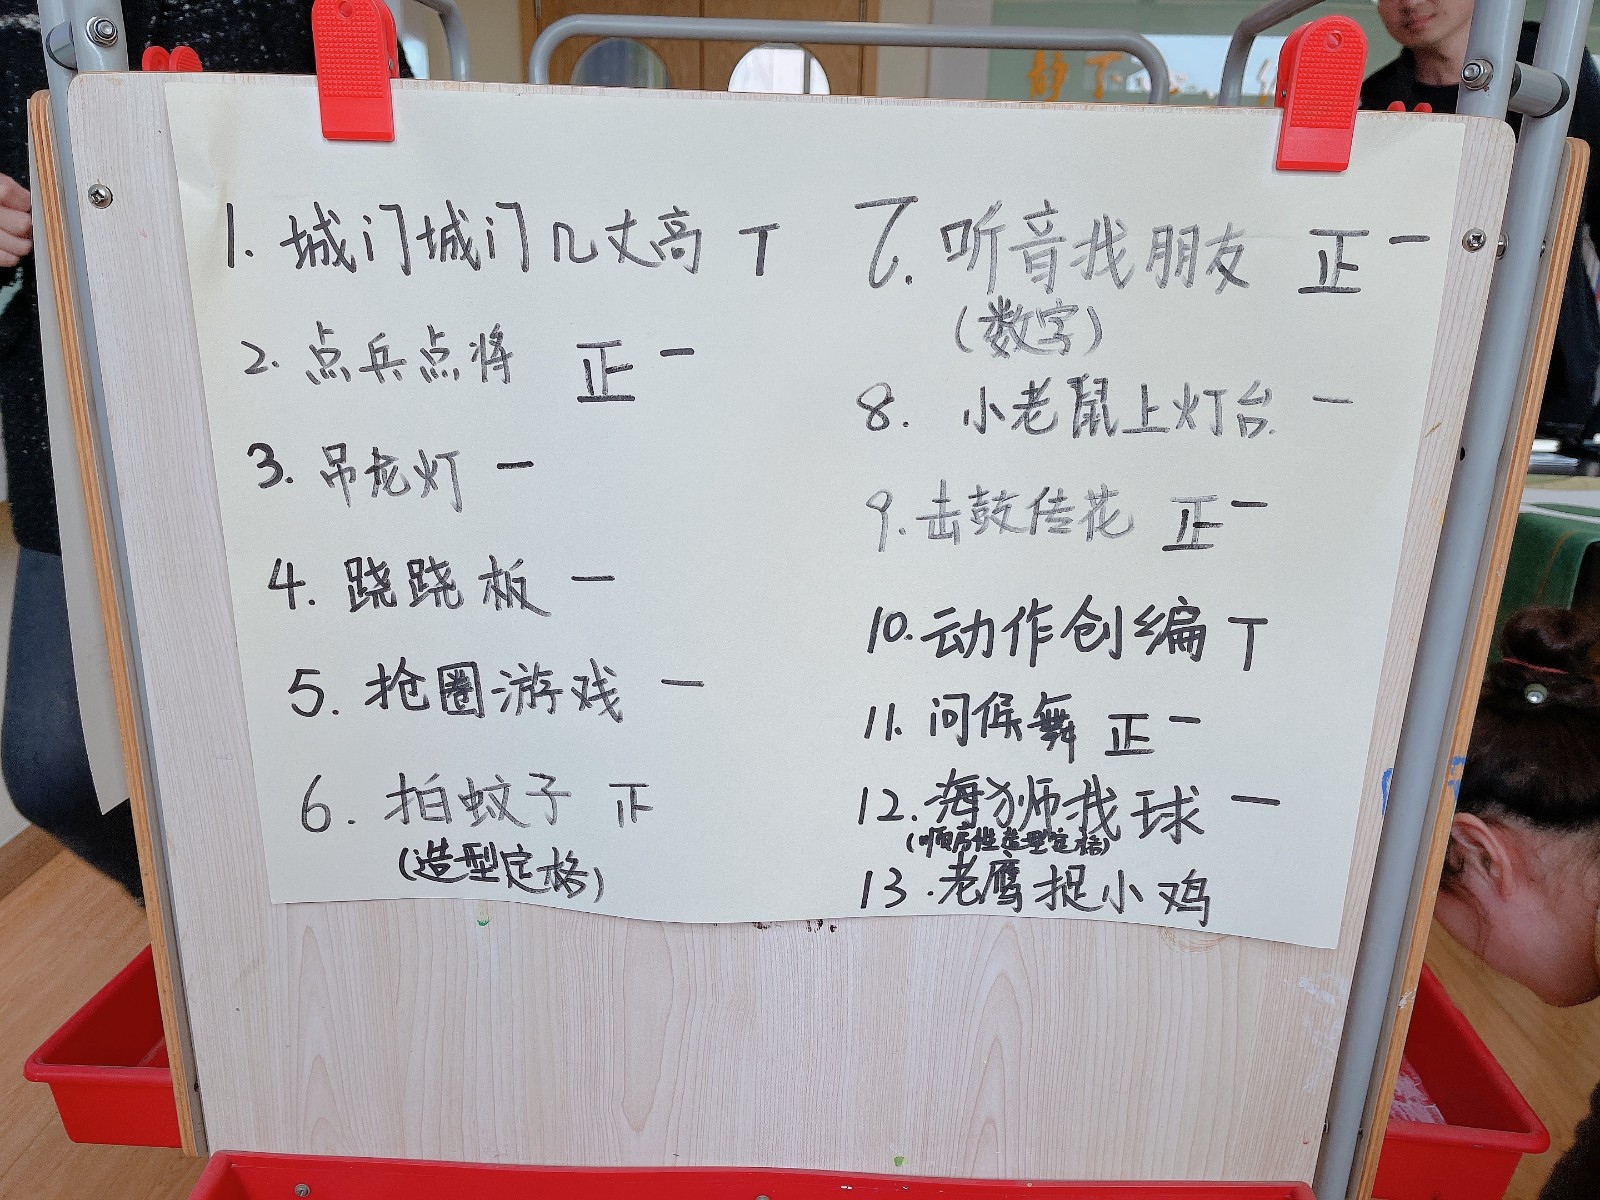 静下
1. 城门城门几丈高 丅
2. 点兵点将 正一
3. 吊龙灯 一
4. 跷跷板 一
5. 抢圈游戏 一
6. 拍蚊子 正
(造型定格)
7. 听音找朋友 正一
(数字)
8. 小老鼠上灯台 一
9. 击鼓传花 正一
10. 动作创编 丅
11. 问候舞 正一
12. 海狮找球 一
(顺序性造型定格)
13. 老鹰捉小鸡